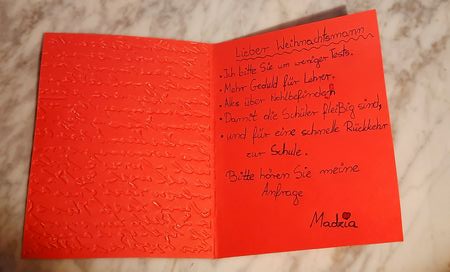 Lieber Weihnachtsmann
• Ich bitte Sie um weniger Tests.
• Mehr Geduld für Lehrer.
• Alles über Wohlbefinden
• Damit die Schüler fleißig sind,
• und für eine schnelle Rückkehr
zur Schule.
Bitte hören Sie meine
Anfrage